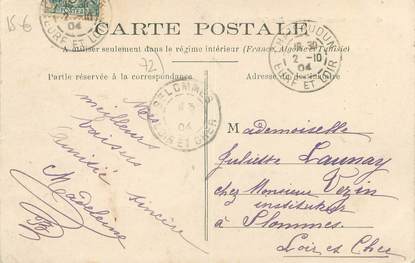 15-6
CARTE POSTALE
A utiliser seulement dans le régime intérieur (France, Algérie et Tunisie)
72
Partie réservée à la correspondance
Adresse du destinataire
2 -10
04
EURE ET LOIR
SELOMMES
04
LOIR ET CHER
CHATEAUDUN
2 -10
04
EURE ET LOIR
Mes
meilleurs
baisers
Amitié sincère
Madeleine
Mademoiselle
Juliette Launay
chez Monsieur Vezin
instituteur
à Slommes
Loir et Cher